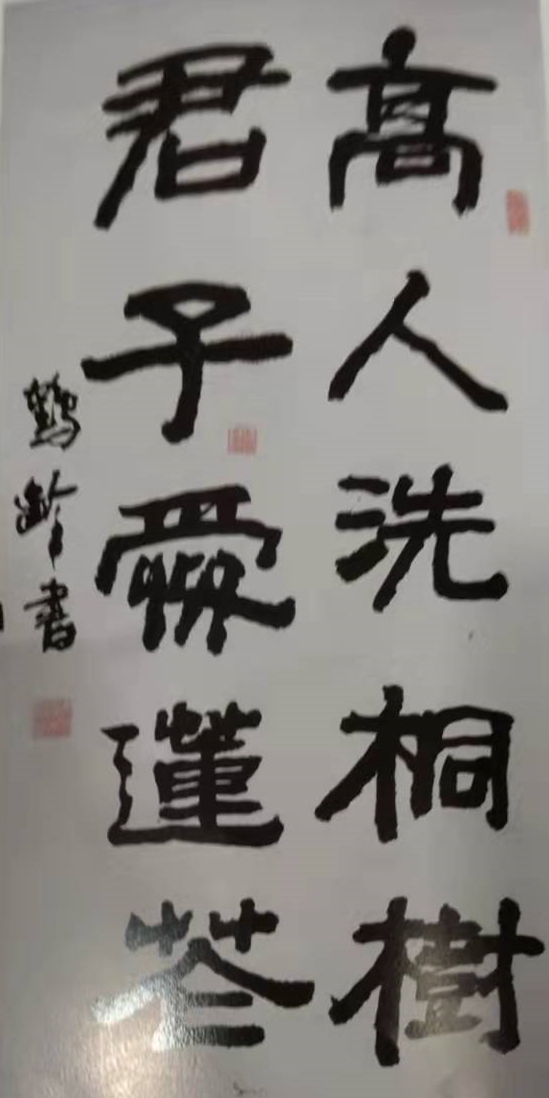 高人洗桐樹
君子愛蓮花
鶴齡書